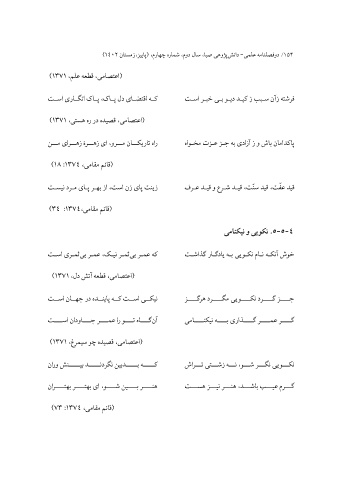 ۱۵۲/ دوفصلنامه علمی- دانش‌پژوهی صبا، سال دوم، شماره چهارم، (پاییز، زمستان ۱۴۰۲)
(اعتصامی، قطعه علم، ۱۳۷۱)
فرشته زآن سبب ز کید دیو بی خبر است که اقتضای دل پاک، پاک انگاری است
(اعتصامی، قصیده در ره هستی، ۱۳۷۱)
پاکدامان باش و ز آزادی به جز عزت مخواه راه تاریکان مرو، ای زهرهٔ زهرای من
(قائم مقامی، ۱۳۷٤: ۱۸)
قید عفّت، قید سنّت، قید شرع و قید عرف زینت پای زن است، از بهر پای مرد نیست
(قائم مقامی،۱۳۷٤: ۳٤)
٤-٥-٥. نکویی و نیکنامی
خوش آنکه نام نکویی به یادگار گذاشت که عمر بی‌ثمر نیک، عمر بی‌ثمری است
(اعتصامی، قطعه آتش دل، ۱۳۷۱)
جز گرد نکویی مگرد هرگز نیکی است که پاینده در جهان است
گر عمر گذاری به نیکنامی آن‌گاه تو را عمر جاودان است
(اعتصامی، قصیده چو سیمرغ، ۱۳۷۱)
نکویی نگر شو، نه زشتی تراش که بدبین نگردند بینش وران
گرم عیب باشد، هنر نیز هست هنر بین شو، ای بهتر بهتران
(قائم مقامی، ۱۳۷٤: ۷۳)